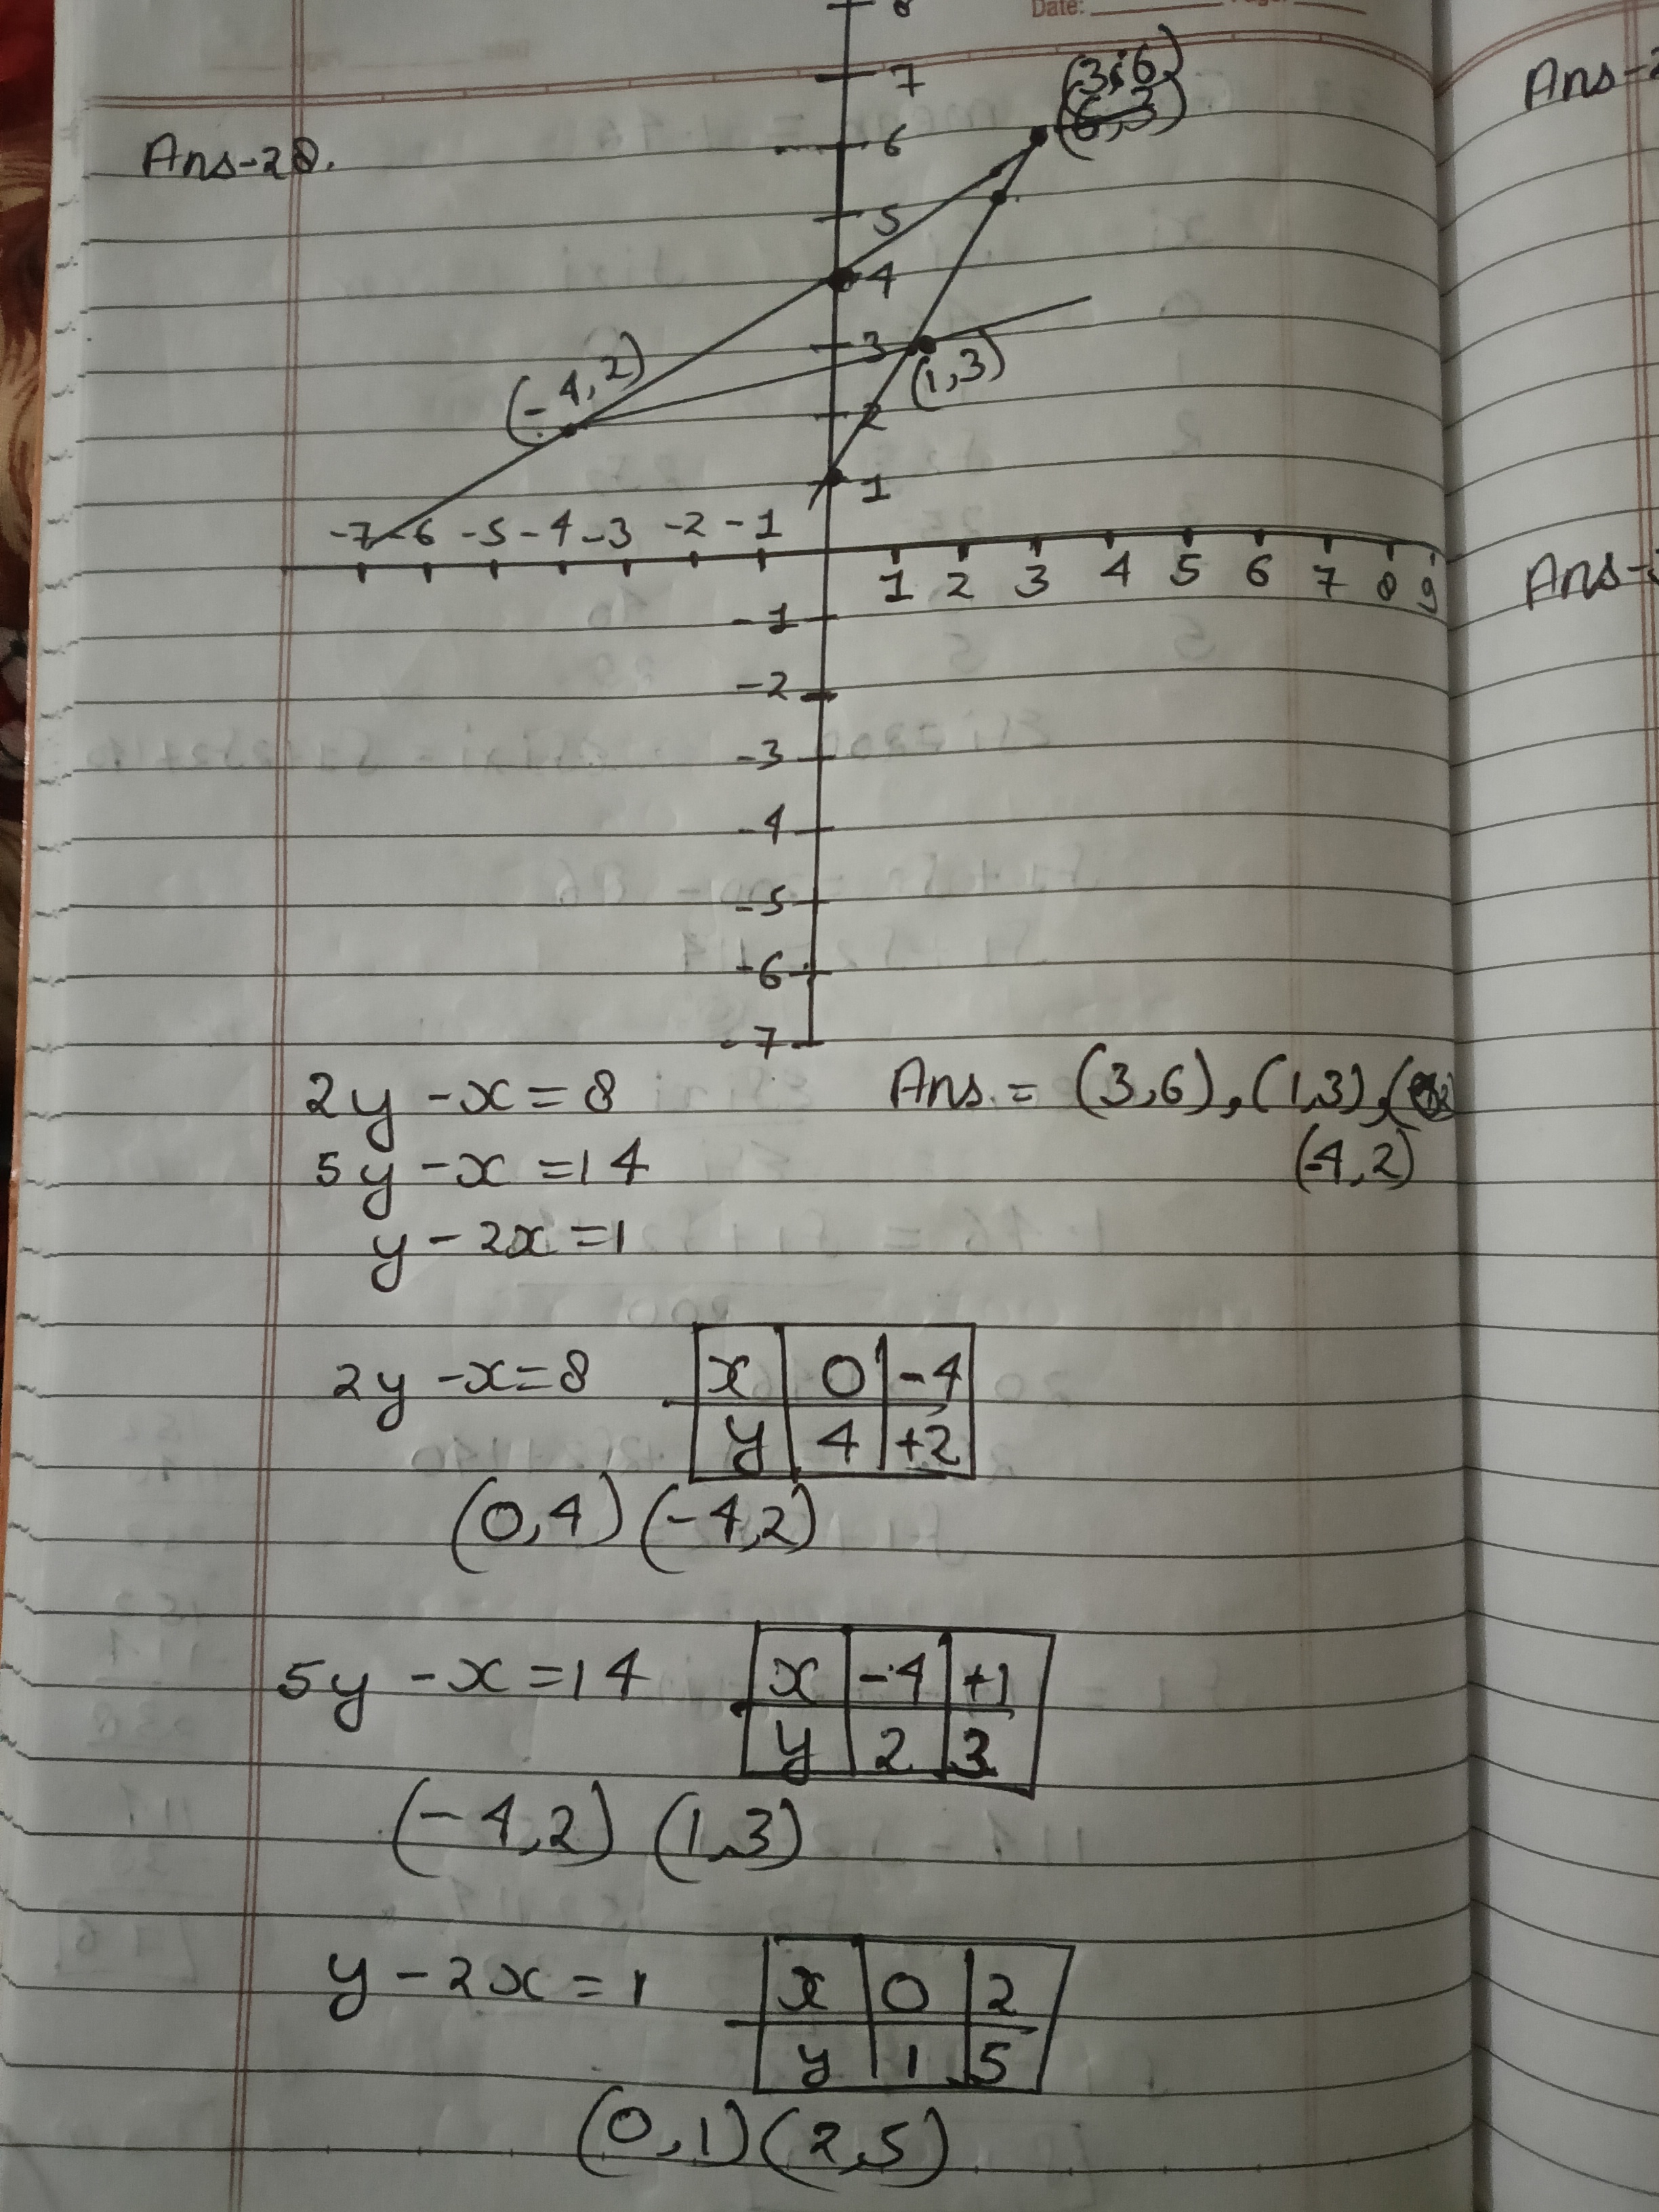 8
Date:
7
(3,6)
(6,3)
Ans-2
Ans-28.
6
5
4
(-4,2)
3
(1,3)
2
1
-7 -6 -5 -4 -3 -2 -1
1 2 3 4 5 6 7 8 9
Ans-
-1
-2
-3
-4
-5
-6
-7
2y -x = 8 Ans. = (3,6), (1,3), (
5y -x = 14 (-4,2)
y - 2x = 1
2y -x = 8 x 0 -4
y 4 +2
(0,4) (-4,2)
5y -x = 14 x -4 +1
y 2 3
(-4,2) (1,3)
y - 2x = 1 x 0 2
y 1 5
(0,1) (2,5)